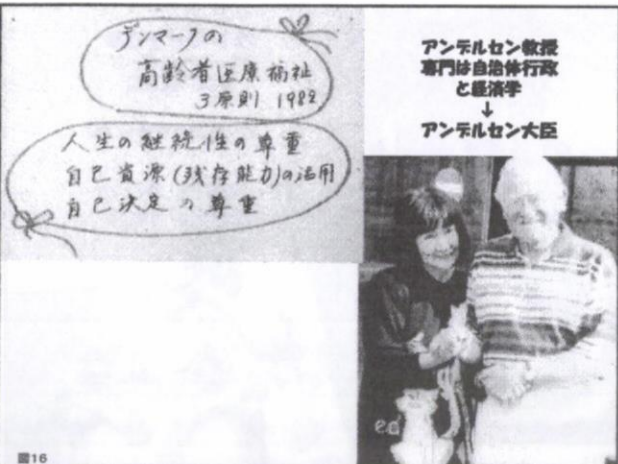 デンマークの
高齢者医療福祉
3原則 1982
人生の継続性の尊重
自己資源(残存能力)の活用
自己決定の尊重
アンデルセン教授
専門は自治体行政
と経済学
↓
アンデルセン大臣
図16